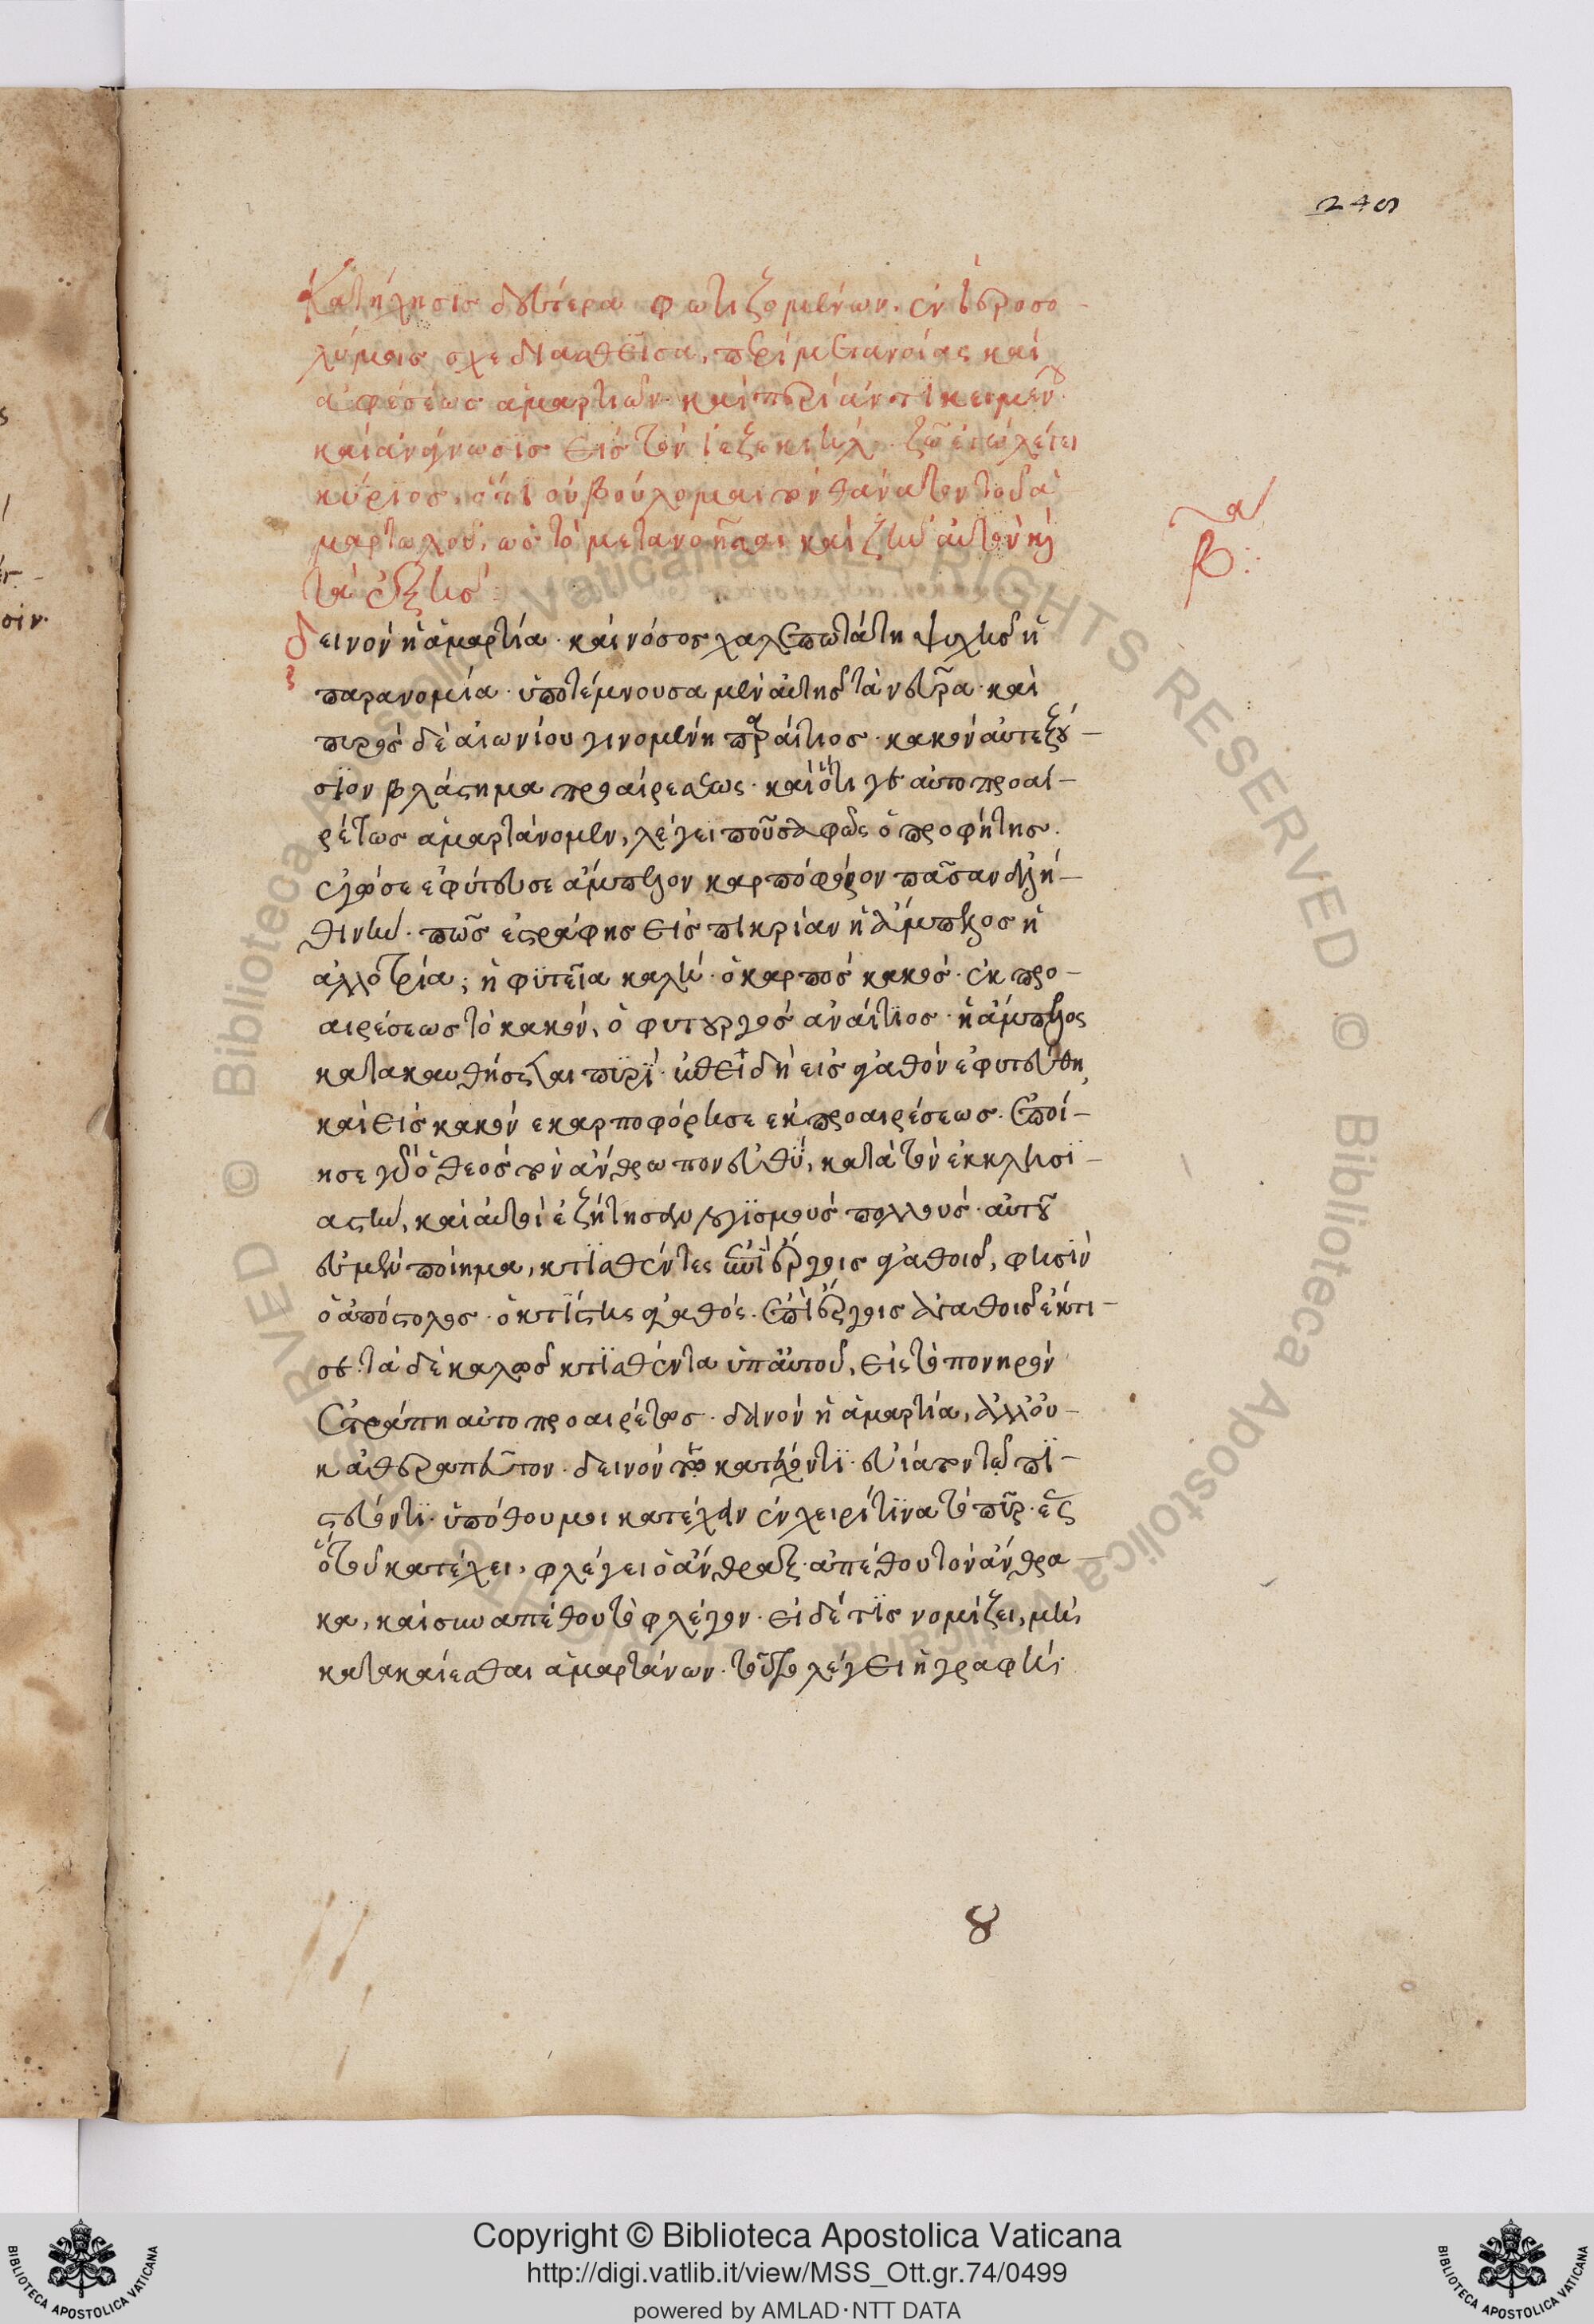 249
Κατήχησις δευτέρα φωτιζομένων. ἐν ἱεροσο-
λύμοις σχεδιασθεῖσα, περὶ μετανοίας καὶ
ἀφέσεως ἁμαρτιῶν. καὶ περὶ ἀντικειμένου.
καὶ ἀνάγνωσις εἰς τὸν ἰεζεκιήλ. ζῶ ἐγὼ λέγει
κύριος, ὅτι οὐ βούλομαι τὸν θάνατον τοῦ ἁ
μαρτωλοῦ, ὡς τὸ μετανοῆσαι καὶ ζῆν αὐτὸν καὶ
τὰ ἑξῆς:
β:
δεινὸν ἡ ἁμαρτία. καὶ νόσος χαλεπωτάτη ψυχῆς ἡ
παρανομία. ὑποτέμνουσα μὲν αὐτῆς τὰ νεῦρα. καὶ
πυρὸς δὲ αἰωνίου γινομένη παραίτιος. κακὸν αὐτεξού-
σϊον βλάστημα προαιρέσεως. καὶ ὅτι γε αὐτοπροαι-
ρέτως ἁμαρτάνομεν, λέγει που σαφῶς ὁ προφήτης.
ἐγώ σε ἐφύτευσα ἄμπελον καρποφόρον πᾶσαν ἀλη-
θινήν. πῶς ἐστράφης εἰς πικρίαν ἡ ἄμπελος ἡ
ἀλλοτρία; ἡ φϋτεία καλή. ὁ καρπὸς κακός. ἐκ προ-
αιρέσεως τὸ κακόν, ὁ φυτουργὸς ἀναίτιος. ἡ ἄμπελος
κατακαυθήσεται πϋρί. ἐπειδὴ εἰς ἀγαθὸν ἐφυτεύθη,
καὶ εἰς κακὸν ἐκαρποφόρησε ἐκ προαιρέσεως. ἐποί-
ησε γὰρ ὁ θεὸς τὸν ἄνθρωπον εὐθῆ, κατὰ τὸν ἐκκλησϊ-
αστήν, καὶ αὐτοὶ ἐζήτησαν λογισμοὺς πολλούς. αὐτοῦ
ἐσμὲν ποίημα, κτϊσθέντες ἐπὶ ἔργοις ἀγαθοῖς, φησϊν
ὁ ἀπόστολος. ὁ κτίστης ἀγαθός. ἐπὶ ἔργοις ἀγαθοῖς ἔκτι-
σε. τὰ δὲ καλῶς κτϊσθέντα ὑπ' αὐτοῦ, εἰς τὸ πονηρὸν
ἐτράπη αὐτοπροαιρέτως. δεινὸν ἡ ἁμαρτία, ἀλλ' οὐ-
κ ἀθεράπευτον. δεινὸν τῷ κατέχοντϊ. εὐίατον τῷ πϊ-
στεύοντϊ. ὑπόθου μοι κατέχειν ἐν χειρί τϊνα τὸ πῦρ. ἕως
ὅτου κατέχει, φλέγει ὁ ἄνθραξ. ἀπέθου τὸν ἄνθρα-
κα, καὶ συναπέθου τὸ φλέγον. εἰ δέ τϊς νομίζει, μὴ
κατακαίεσθαι ἁμαρτάνων. τούτῳ λέγει ἡ γραφή
8
Biblioteca Apostolica Vaticana ALL RIGHTS RESERVED ©
Copyright © Biblioteca Apostolica Vaticana
http://digi.vatlib.it/view/MSS_Ott.gr.74/0499
powered by AMLAD·NTT DATA
BIBLIOTECA APOSTOLICA VATICANA
BIBLIOTECA APOSTOLICA VATICANA